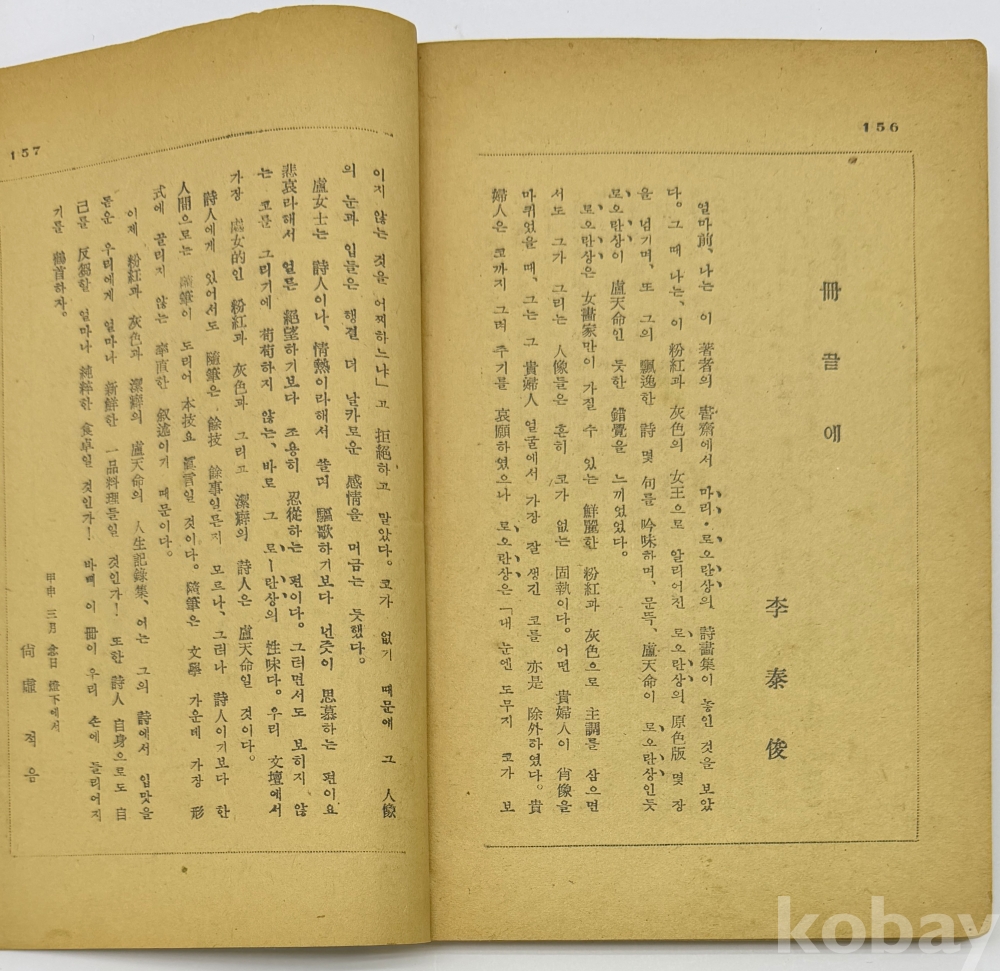 156
冊끝에
李泰俊
얼마前, 나는 이 著者의 書齋에서 마리·로오란상의 詩畵集이 놓인 것을 보았
다. 그 때 나는, 이 粉紅과 灰色의 女王으로 알리어진 로오란상의 原色版 몇 장
을 넘기며, 또 그의 飄逸한 詩 몇 句를 吟味하며, 문득, 盧天命이 로오란상인듯
로오란상이 盧天命인 듯한 錯覺을 느끼었었다.
로오란상은 女畵家만이 가질 수 있는 鮮麗한 粉紅과 灰色으로 主調를 삼으면
서도 그가 그리는 人像들은 흔히 코가 없는 固執이다. 어떤 貴婦人이 肖像을
마퀴었을 때, 그는 그 貴婦人 얼굴에서 가장 잘 생긴 코를 亦是 除外하였다. 貴
婦人은 코까지 그려 주기를 哀願하였으나 로오란상은 「내 눈엔 도무지 코가 보
157
이지 않는 것을 어찌하느냐」고 拒絕하고 말았다. 코가 없기 때문에 그 人像
의 눈과 입들은 행결 더 날카로운 感情을 머금는 듯했다.
盧女士는 詩人이나, 情熱이라해서 쏠려 驅歌하기보다 넌즛이 思慕하는 편이요
悲哀라해서 얼른 絕望하기보다 조용히 忍從하는 편이다. 그러면서도 보히지 않
는 코를 그리기에 苟苟하지 않는, 바로 그 로ー란상의 性味다. 우리 文壇에서
가장 處女的인 粉紅과 灰色과 그리고 潔癖의 詩人은 盧天命일 것이다.
詩人에게 있어서도 隨筆은 餘技 餘事일른지 모르나, 그러나 詩人이기보다 한
人間으로는 隨筆이 도리어 本技요 眞言일 것이다. 隨筆은 文學 가운데 가장 形
式에 끌리지 않는 率直한 叙述이기 때문이다。
이제 粉紅과 灰色과 潔癖의 盧天命의 人生記錄集, 여는 그의 詩에서 입맛을
돋운 우리에게 얼마나 新鮮한 一品料理들일 것인가! 또한 詩人 自身으로도 自
己를 反芻할 얼마나 純粹한 食卓일 것인가! 바삐 이 冊이 우리 손에 들리어지
기를 鶴首하자。
甲申 三月 念日 燈下에서
尙虛 적음
kobay